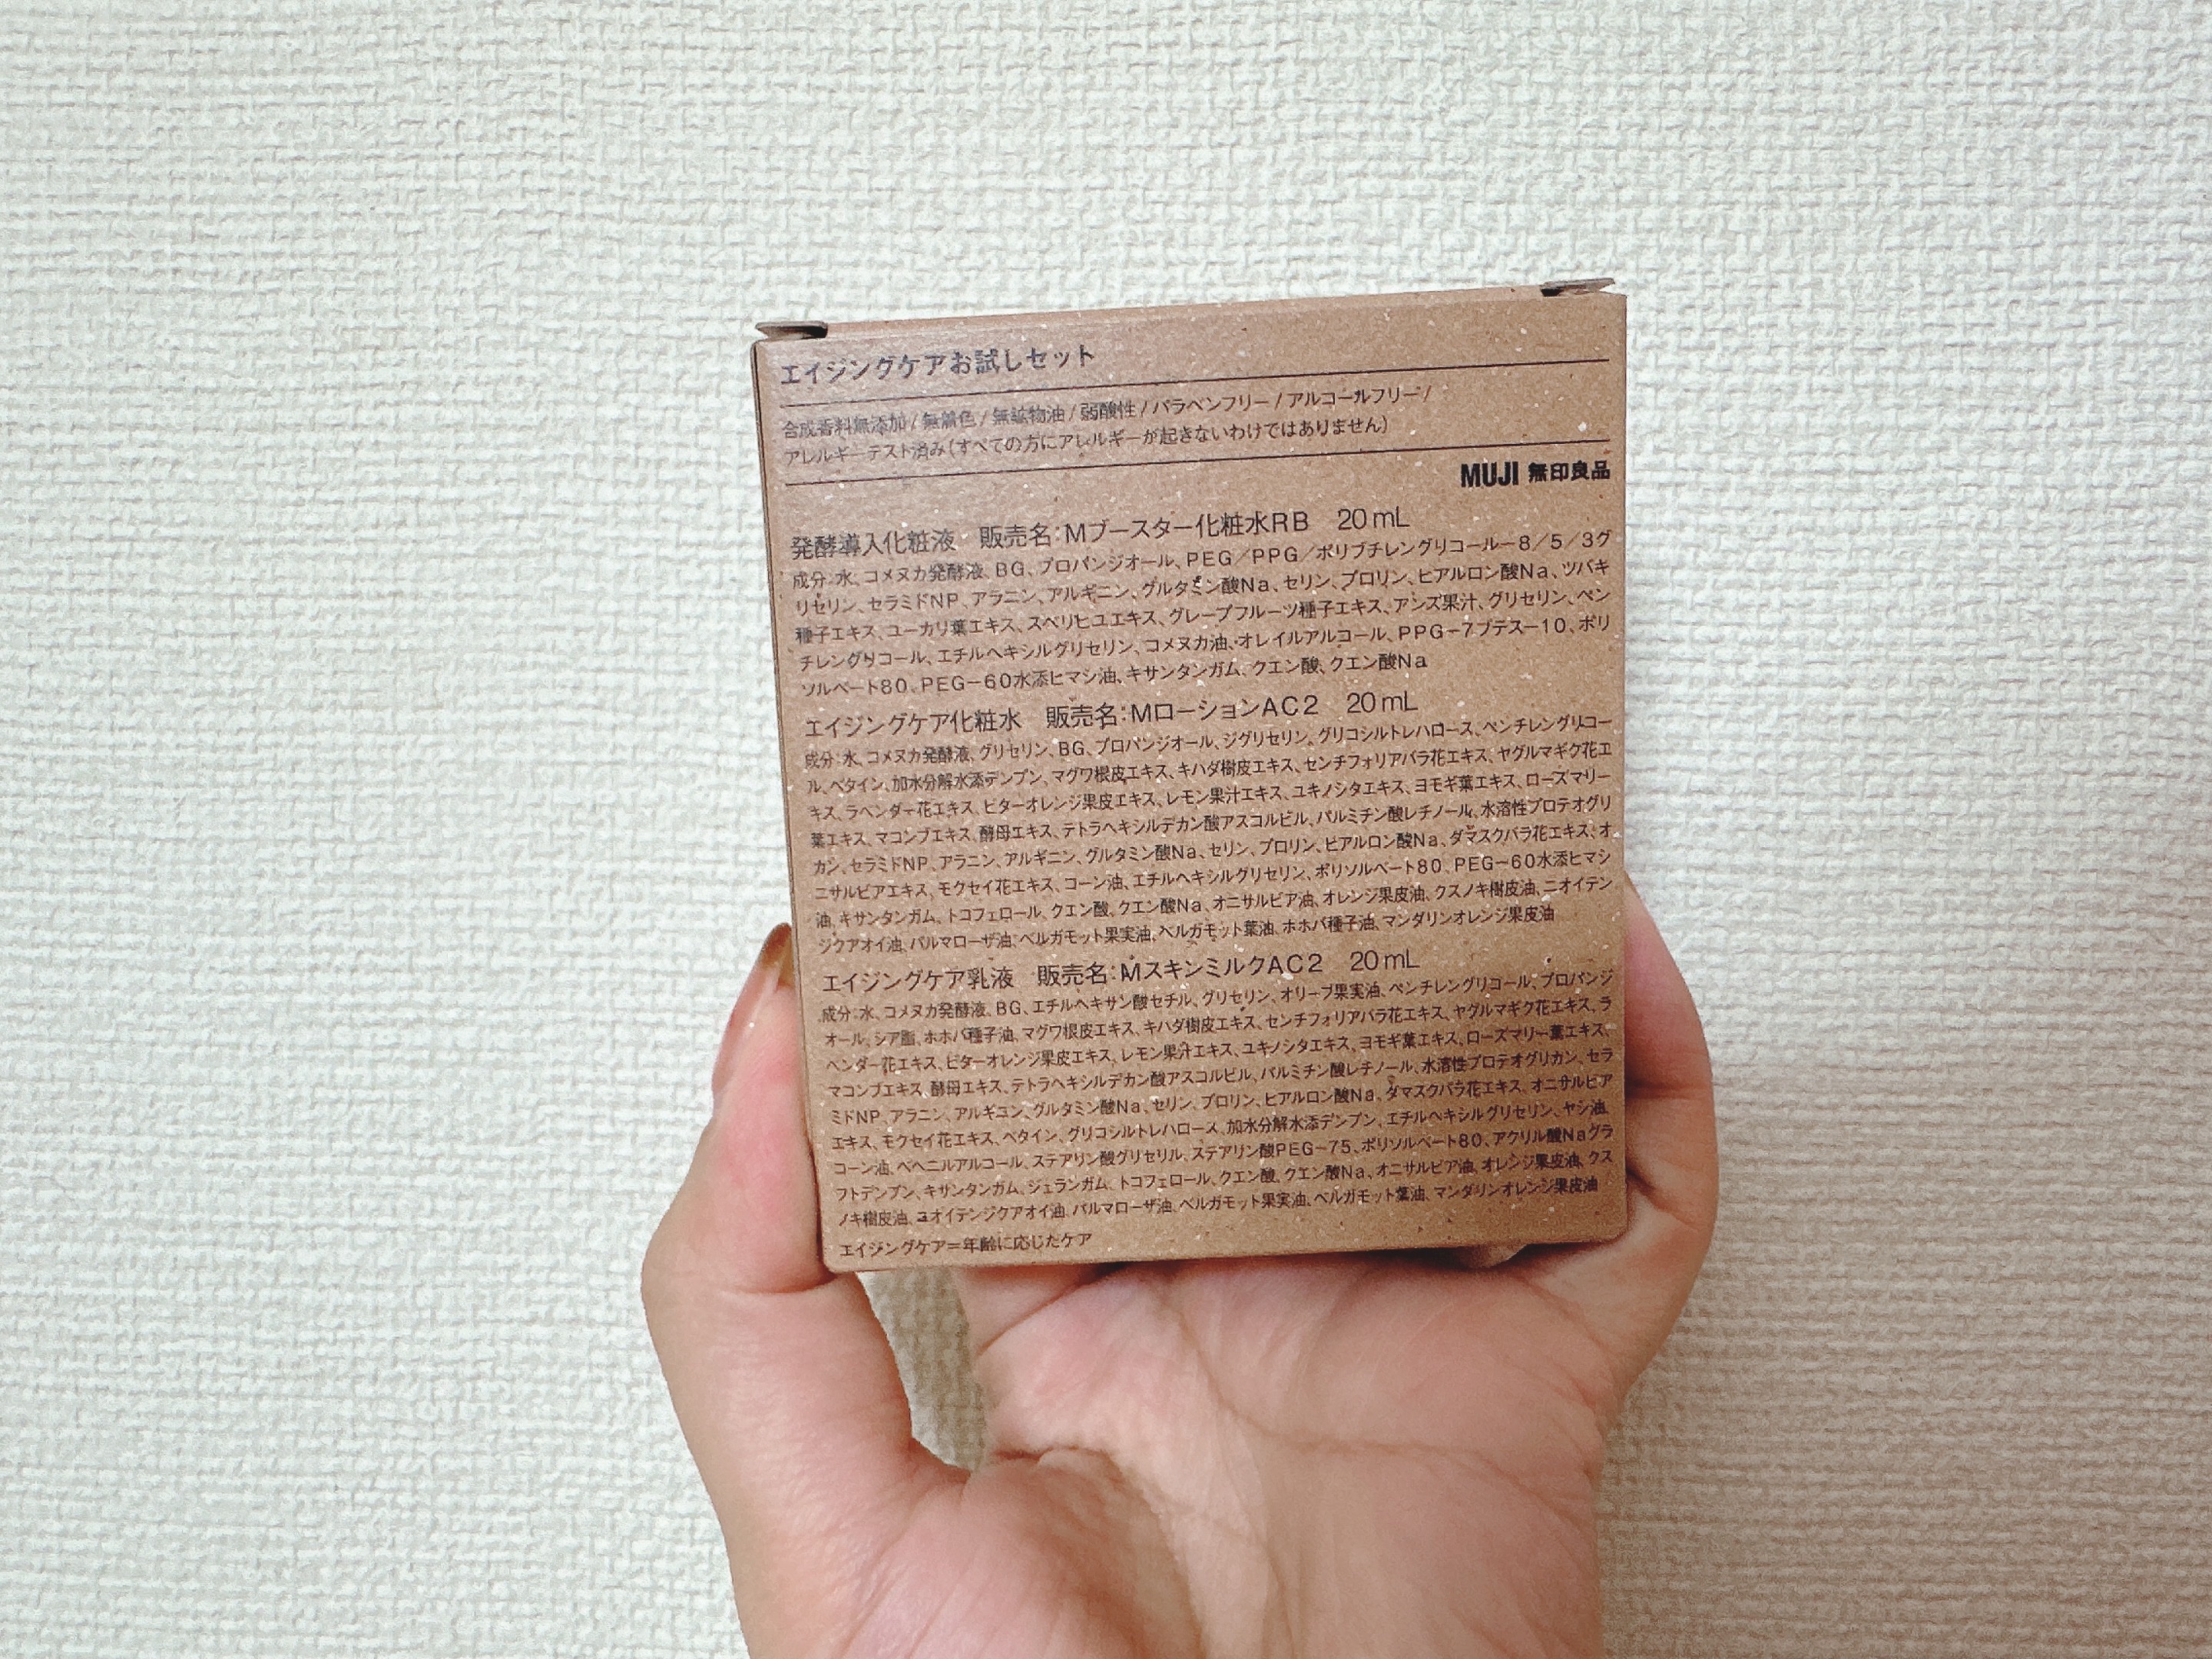 エイジングケアお試しセット
合成香料無添加/無着色/無鉱物油/弱酸性/パラベンフリー/アルコールフリー/
アレルギーテスト済み(すべての方にアレルギーが起きないわけではありません)
MUJI 無印良品
発酵導入化粧液 販売名:Mブースター化粧水RB 20mL
成分:水、コメヌカ発酵液、BG、プロパンジオール、PEG/PPG/ポリブチレングリコール-8/5/3グ
リセリン、セラミドNP、アラニン、アルギニン、グルタミン酸Na、セリン、プロリン、ヒアルロン酸Na、ツバキ
種子エキス、ユーカリ葉エキス、スベリヒユエキス、グレープフルーツ種子エキス、アンズ果汁、グリセリン、ペン
チレングリコール、エチルヘキシルグリセリン、コメヌカ油、オレイルアルコール、PPG-7ブテス-10、ポリ
ソルベート80、PEG-60水添ヒマシ油、キサンタンガム、クエン酸、クエン酸Na
エイジングケア化粧水 販売名:MローションAC2 20mL
成分:水、コメヌカ発酵液、グリセリン、BG、プロパンジオール、ジグリセリン、グリコシルトレハロース、ペンチレングリコー
ル、ベタイン、加水分解水添デンプン、マグワ根皮エキス、キハダ樹皮エキス、センチフォリアバラ花エキス、ヤグルマギク花エ
キス、ラベンダー花エキス、ビターオレンジ果皮エキス、レモン果汁エキス、ユキノシタエキス、ヨモギ葉エキス、ローズマリー
葉エキス、マコンブエキス、酵母エキス、テトラヘキシルデカン酸アスコルビル、パルミチン酸レチノール、水溶性プロテオグリ
カン、セラミドNP、アラニン、アルギニン、グルタミン酸Na、セリン、プロリン、ヒアルロン酸Na、ダマスクバラ花エキス、オ
ニサルビアエキス、モクセイ花エキス、コーン油、エチルヘキシルグリセリン、ポリソルベート80、PEG-60水添ヒマシ
油、キサンタンガム、トコフェロール、クエン酸、クエン酸Na、オニサルビア油、オレンジ果皮油、クスノキ樹皮油、ニオイテン
ジクアオイ油、パルマローザ油、ベルガモット果実油、ベルガモット葉油、ホホバ種子油、マンダリンオレンジ果皮油
エイジングケア乳液 販売名:MスキンミルクAC2 20mL
成分:水、コメヌカ発酵液、BG、エチルヘキサン酸セチル、グリセリン、オリーブ果実油、ペンチレングリコール、プロパンジ
オール、シア脂、ホホバ種子油、マグワ根皮エキス、キハダ樹皮エキス、センチフォリアバラ花エキス、ヤグルマギク花エキス、ラ
ベンダー花エキス、ビターオレンジ果皮エキス、レモン果汁エキス、ユキノシタエキス、ヨモギ葉エキス、ローズマリー葉エキス、
マコンブエキス、酵母エキス、テトラヘキシルデカン酸アスコルビル、パルミチン酸レチノール、水溶性プロテオグリカン、セラ
ミドNP、アラニン、アルギニン、グルタミン酸Na、セリン、プロリン、ヒアルロン酸Na、ダマスクバラ花エキス、オニサルビア
エキス、モクセイ花エキス、ベタイン、グリコシルトレハロース、加水分解水添デンプン、エチルヘキシルグリセリン、ヤシ油、
コーン油、ベヘニルアルコール、ステアリン酸グリセリル、ステアリン酸PEG-75、ポリソルベート80、アクリル酸Naグラ
フトデンプン、キサンタンガム、ジェランガム、トコフェロール、クエン酸、クエン酸Na、オニサルビア油、オレンジ果皮油、クス
ノキ樹皮油、ニオイテンジクアオイ油、パルマローザ油、ベルガモット果実油、ベルガモット葉油、マンダリンオレンジ果皮油
エイジングケア=年齢に応じたケア